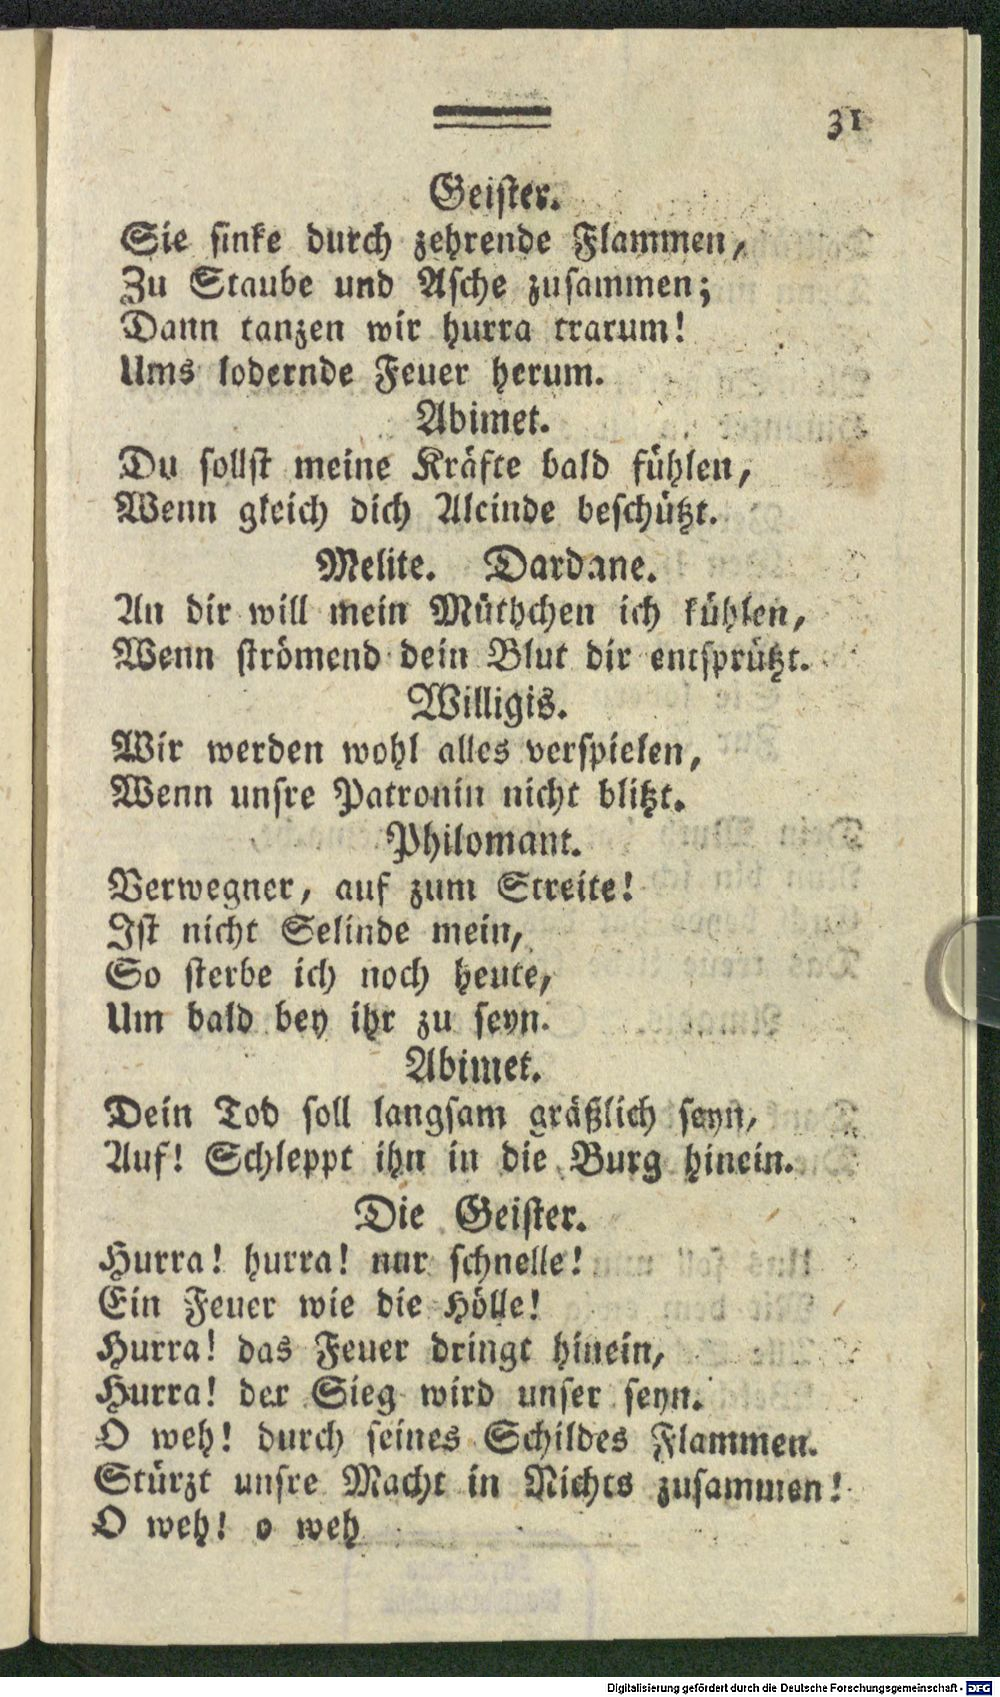 31
Geister.
Sie sinke durch zehrende Flammen,
Zu Staube und Asche zusammen;
Dann tanzen wir hurra trarum!
Ums lodernde Feuer herum.
Abimet.
Du sollst meine Kräfte bald fühlen,
Wenn gleich dich Alcinde beschützt.
Melite. Dardane.
An dir will mein Müthchen ich kühlen,
Wenn strömend dein Blut dir entsprützt.
Willigis.
Wir werden wohl alles verspielen,
Wenn unsre Patronin nicht blitzt.
Philomant.
Verwegner, auf zum Streite!
Ist nicht Selinde mein,
So sterbe ich noch heute,
Um bald bey ihr zu seyn.
Abimet.
Dein Tod soll langsam gräßlich seyn,
Auf! Schleppt ihn in die Burg hinein.
Die Geister.
Hurra! hurra! nur schnelle!
Ein Feuer wie die Hölle!
Hurra! das Feuer dringt hinein,
Hurra! der Sieg wird unser seyn.
O weh! durch seines Schildes Flammen.
Stürzt unsre Macht in Nichts zusammen!
O weh! o weh
Digitalisierung gefördert durch die Deutsche Forschungsgemeinschaft - DFG